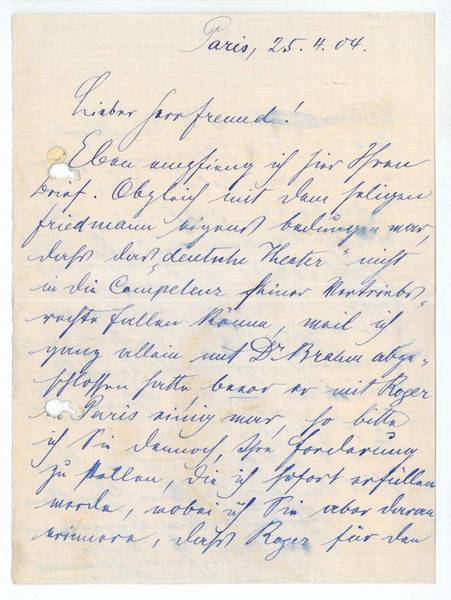 Paris, 25.4.04.
Lieber Herr Freund!
Eben empfieng ich hier Ihren
Brief. Obgleich mit dem seligen
Friedmann eigens bedungen war,
dass das „deutsche Theater" nicht
in die Competenz seiner Vertriebs-
rechte fallen könne, weil ich
ganz allein mit Dr Brahm abge-
schlossen hatte bevor er mit Roger
in Paris einig war, so bitte
ich Sie dennoch, Ihre Forderung
zu stellen, die ich sofort erfüllen
werde, wobei ich Sie aber daran
erinnere, dass Roger für den